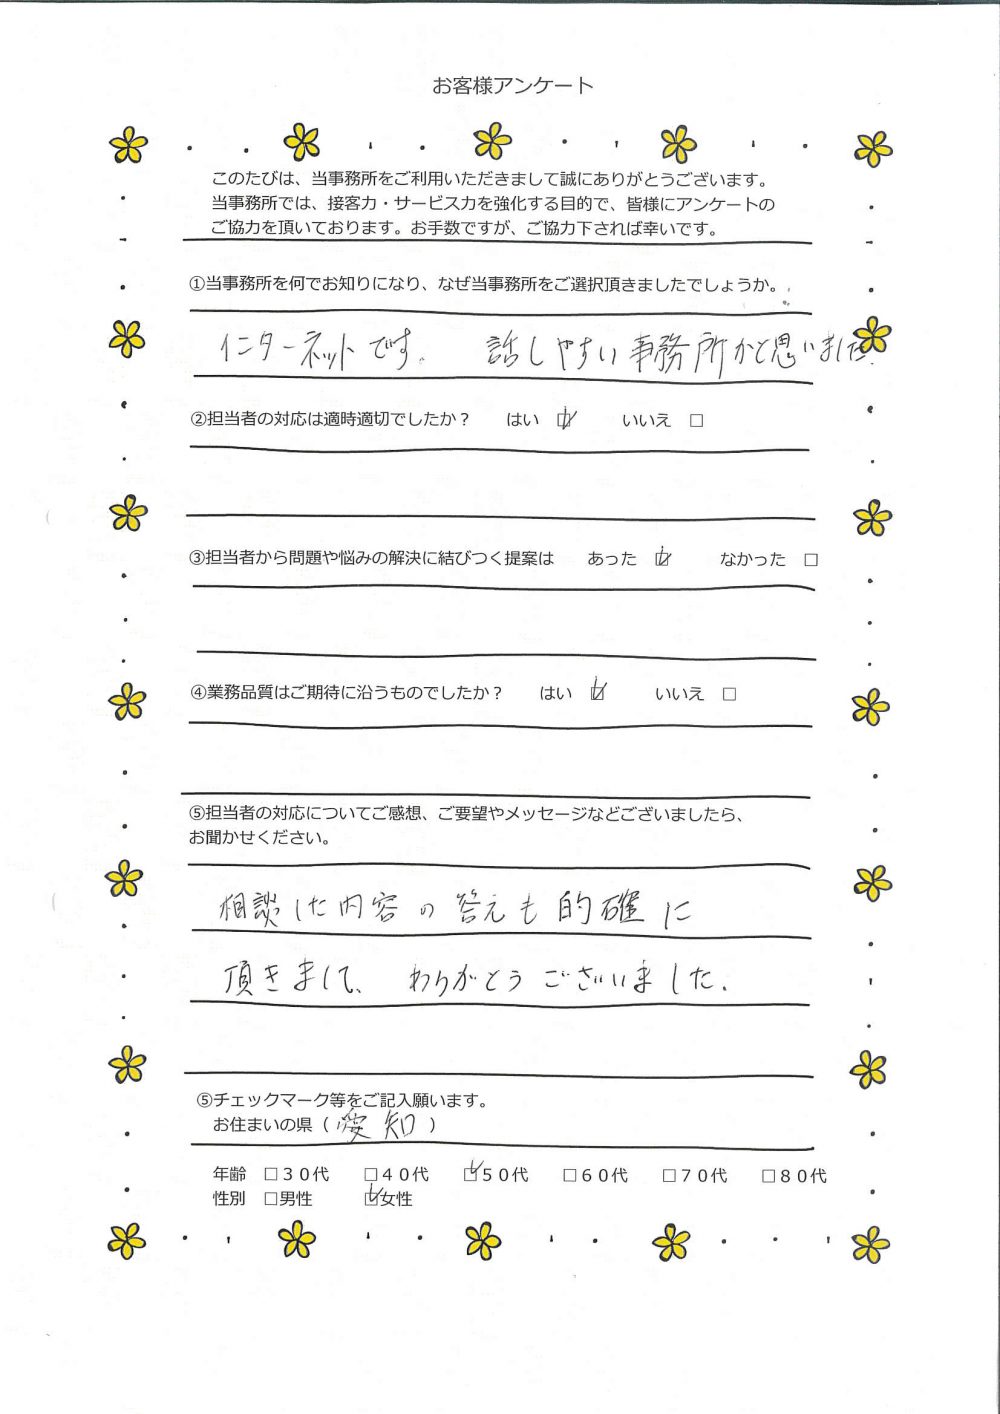 お客様アンケート
このたびは、当事務所をご利用いただきまして誠にありがとうございます。
当事務所では、接客力・サービス力を強化する目的で、皆様にアンケートの
ご協力を頂いております。お手数ですが、ご協力下されば幸いです。
①当事務所を何でお知りになり、なぜ当事務所をご選択頂きましたでしょうか。
インターネットです。 話しやすい事務所かと思いました。
②担当者の対応は適時適切でしたか？ はい ☑ いいえ □
③担当者から問題や悩みの解決に結びつく提案は あった ☑ なかった □
④業務品質はご期待に沿うものでしたか？ はい ☑ いいえ □
⑤担当者の対応についてご感想、ご要望やメッセージなどございましたら、
お聞かせください。
相談した内容の答えも的確に
頂きまして、ありがとうございました。
⑤チェックマーク等をご記入願います。
お住まいの県（愛知）
年齢 □３０代 □４０代 ☑５０代 □６０代 □７０代 □８０代
性別 □男性 ☑女性